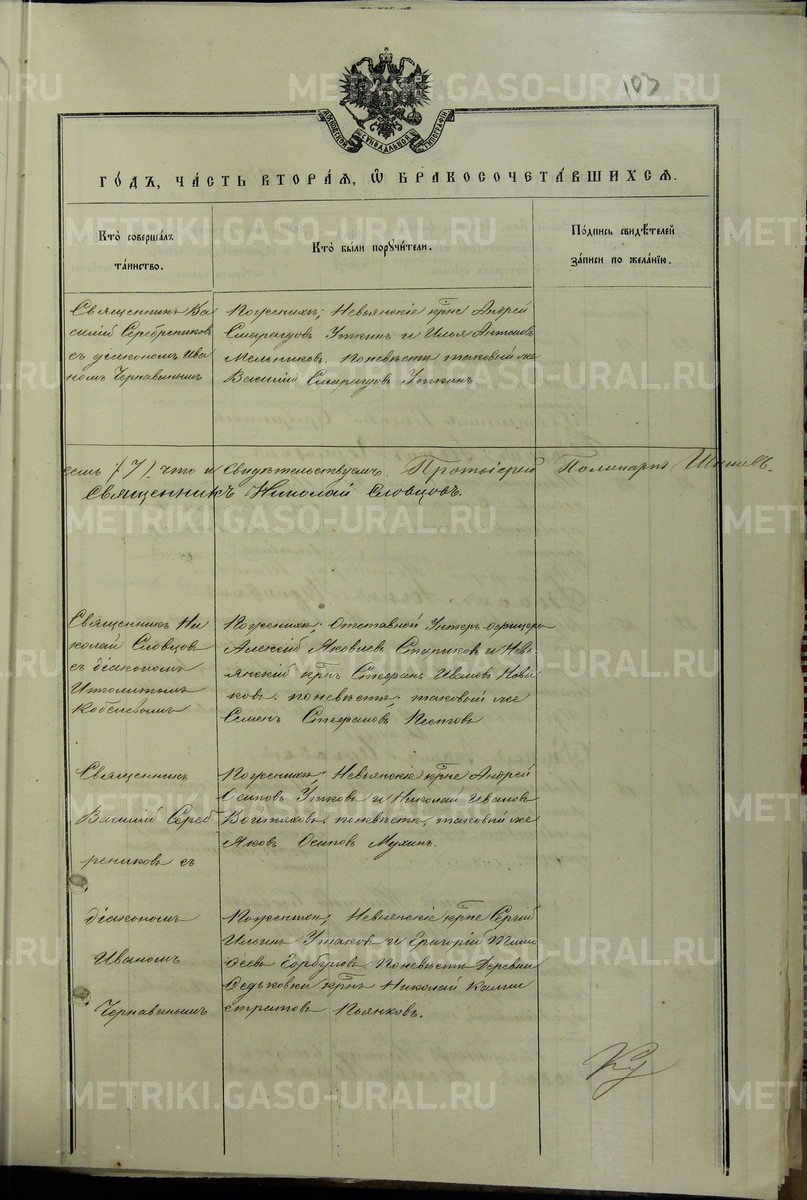 103
МОСКОВСКОЙ СѴНОДАЛЬНОЙ ТИПОГРАФІИ
ГО́ДЪ, ЧА́СТЬ ВТОРА́Я, Ѿ БРАКОСОЧЕТА́ВШИХСЯ.
Кто̀ соверша́лъ
та́инство.
Кто̀ бы́ли поручи́тели.
По́дпись свидѣ́телей
за́писи по жела́нію.
Священникъ Ва
силій Серебрениковъ
съ діакономъ Ива
номъ Чернавинымъ
По женихѣ; Невьянскіе кр̃не Андрей
Смарагдовъ Уткинъ и Илья Антоновъ
Мельниковъ. По невѣстѣ таковый же
Василій Смарагдовъ Уткинъ.
семь /7/. что и свидѣтельствуемъ. Протоіерей Поликарпъ
Священникъ Николай Словцовъ.
Священникъ Ни
колай Словцовъ
съ діакономъ
Иполитомъ
По женихѣ; Отставной Унтеръ-офицеръ
Алексѣй Яковлевъ Стариковъ и Невь-
янскій кр̃нъ Стефанъ Ивановъ Нови
ковъ. по невѣстѣ; таковый же
Семенъ Стефановъ Пестовъ
Священникъ
Василій Сереб
рениковъ съ
По женихѣ; Невьянскіе кр̃не Андрей
Осиповъ Утковъ и Николай Ивановъ
по невѣстѣ, таковый же
Яковъ Осиповъ Мухинъ.
діакономъ
Иваномъ
Чернавинымъ
По женихѣ; Невьянскіе кр̃не Сергій
Ильинъ Утковъ и Григорій Тимо
ѳеевъ Горбуновъ. По невѣстѣ деревни
Ѳедьковки кр̃нъ Николай Калли
стратовъ Пьянковъ.
METRIKI.GASO-URAL.RU